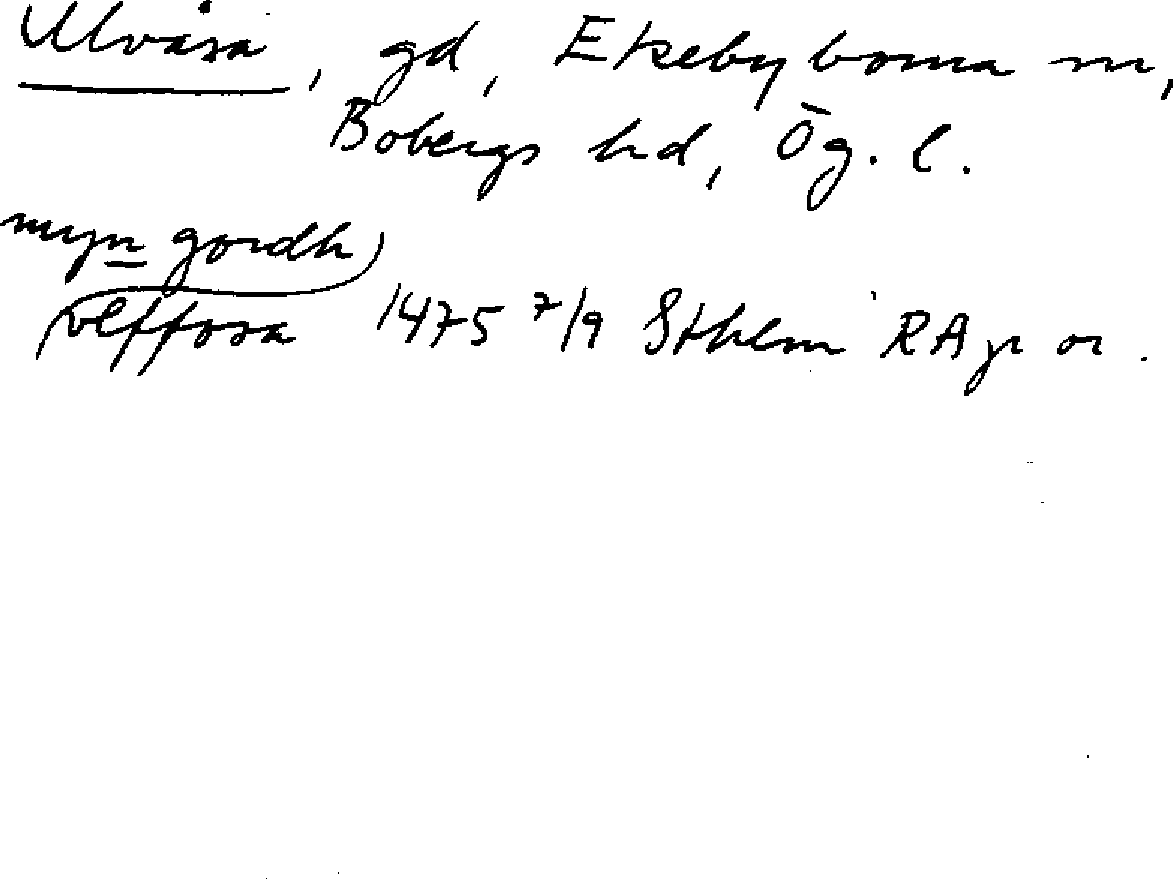 Ulvåsa, gd, Ekebyborna sn,
Bobergs hd, Ög. l.
myn gordh
vlffosa 1475 7/9 Sthlm RAp or.